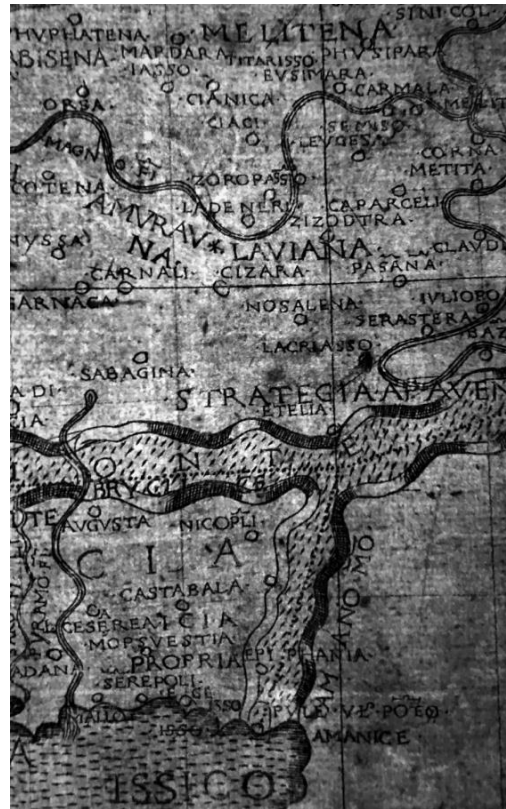 SINICOL·
PHVPHATENA
MELITENA
ABISENA·
MARDARA·
TITARISSO
PHVSIPARA·
IASSO·
EVSIMARA·
ORSA·
CIANICA·
CARMALA·
MELIT
CIACI·
SEMISO
LEVGESA·
CORNA·
METITA·
MAGN
ZOROPASSO
COTENA·
LADENERI·
CAPARCELI
AMVRAV
ZIZODTRA·
NYSSA
NA·
LAVIANA·
CLAVDI
CARNALI·
CIZARA·
PASANA·
GARNACA·
NOSALENA·
IVLIOPO
SERASTERA
BAZ
LACRIASSO
SABAGINA·
STRATEGIA·
AVEN
ETELIA·
AVGVSTA·
NICOPLI·
CIA
CASTABALA·
CESEREA·
ICIA
MOPSVESTIA·
PROPRIA
EPIPHANIA·
ADANA
SEREPOLI·
EGE
ISSO
MALLOT
AMANO MO
AMANICE·
ISSICO